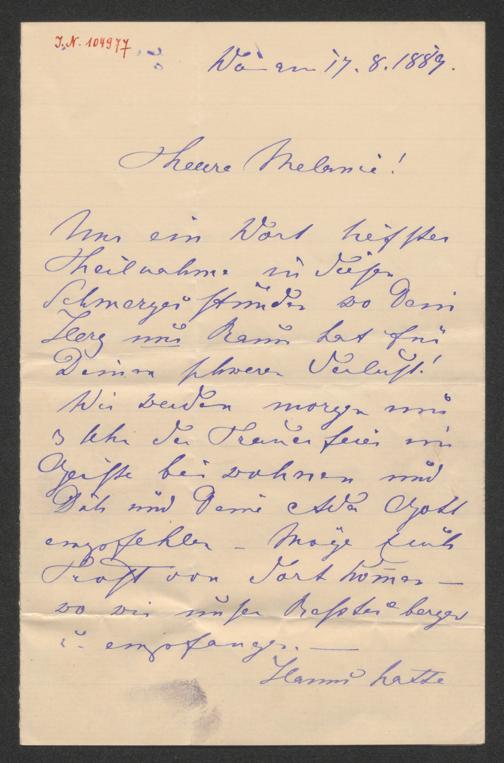 I.N. 104977
Wien am 17.8.1889.
Theure Melanie!
Nur ein Wort tiefster
Theilnahme in diesen
Schmerzensstunden wo Dein
Herz nur Raum hat für
Deinen schweren Verlust!
Wir werden morgen um
3 Uhr der Trauerfeier im
Geiste bei wohnen und
Dich und Deine Gott
empfehlen – Möge Euch
Trost von dort kom̄en –
wo wir unser Bestes bergen
u. empfangen. –